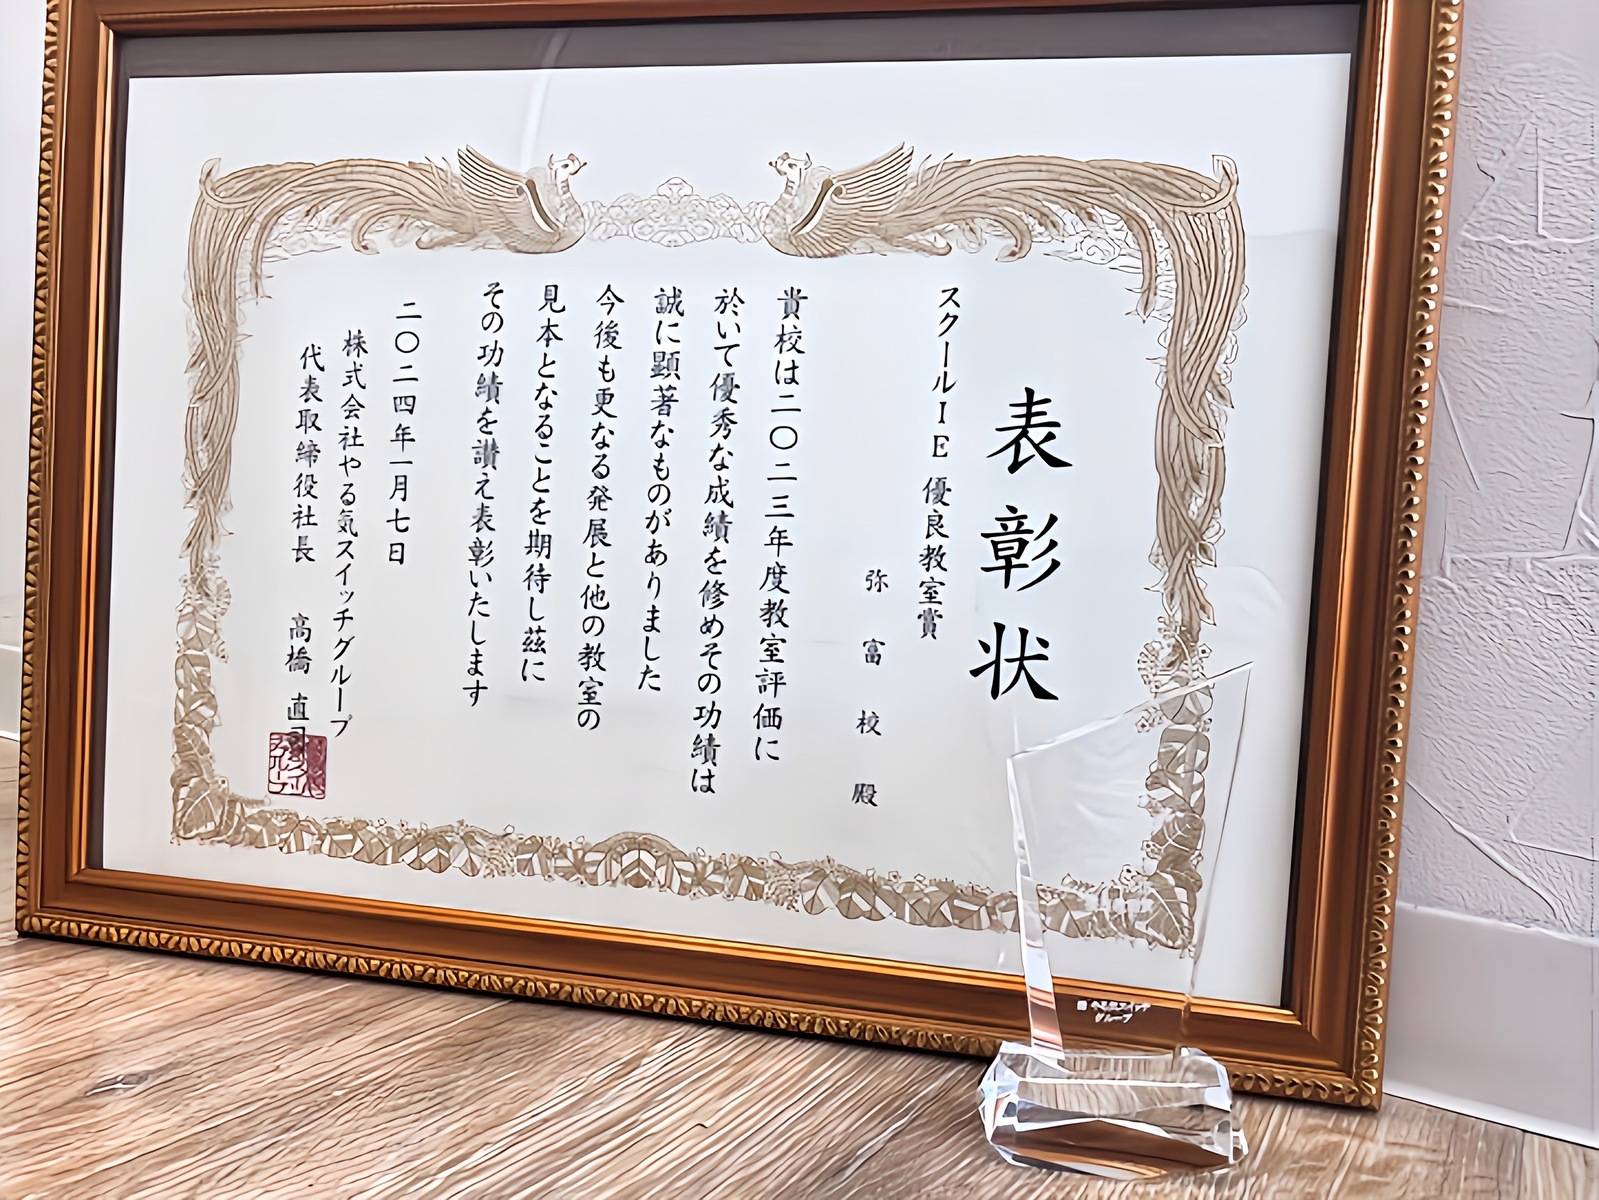 表彰状
スクールIE 優良教室賞
弥富校殿
貴校は二〇二三年度教室評価に
於いて優秀な成績を修めその功績は
誠に顕著なものがありました
今後も更なる発展と他の教室の
見本となることを期待し茲に
その功績を讃え表彰いたします
二〇二四年一月七日
株式会社やる気スイッチグループ
代表取締役社長 高橋 直司
やる気スイッチ
グループ